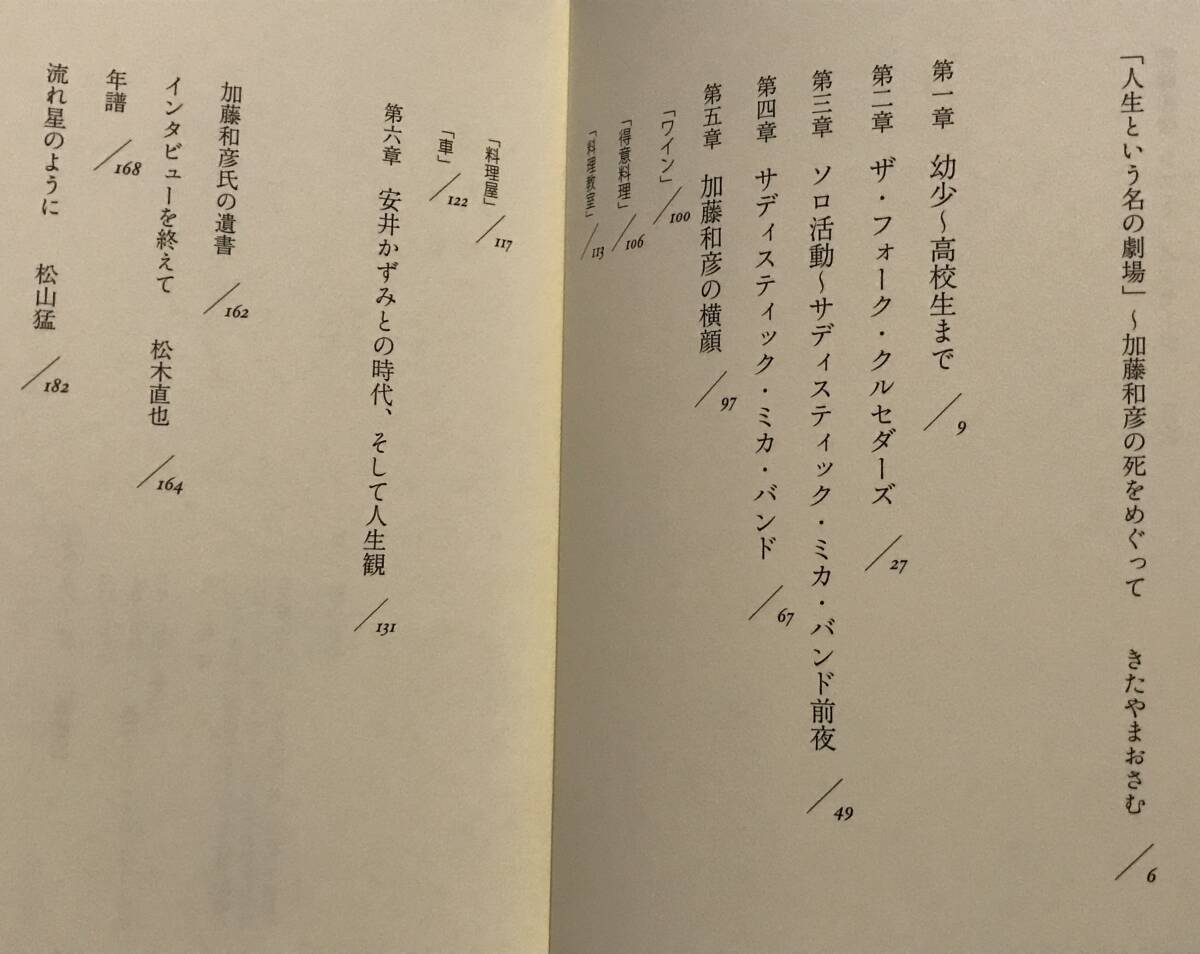 「人生という名の劇場」〜加藤和彦の死をめぐって　きたやまおさむ／6
第一章　幼少〜高校生まで／9
第二章　ザ・フォーク・クルセダーズ／27
第三章　ソロ活動〜サディスティック・ミカ・バンド前夜／49
第四章　サディスティック・ミカ・バンド／67
第五章　加藤和彦の横顔／97
「ワイン」／100
「得意料理」／106
「料理教室」／113
「料理屋」／117
「車」／122
第六章　安井かずみとの時代、そして人生観／131
加藤和彦氏の遺書／162
インタビューを終えて　松木直也／164
年譜／168
流れ星のように　松山猛／182